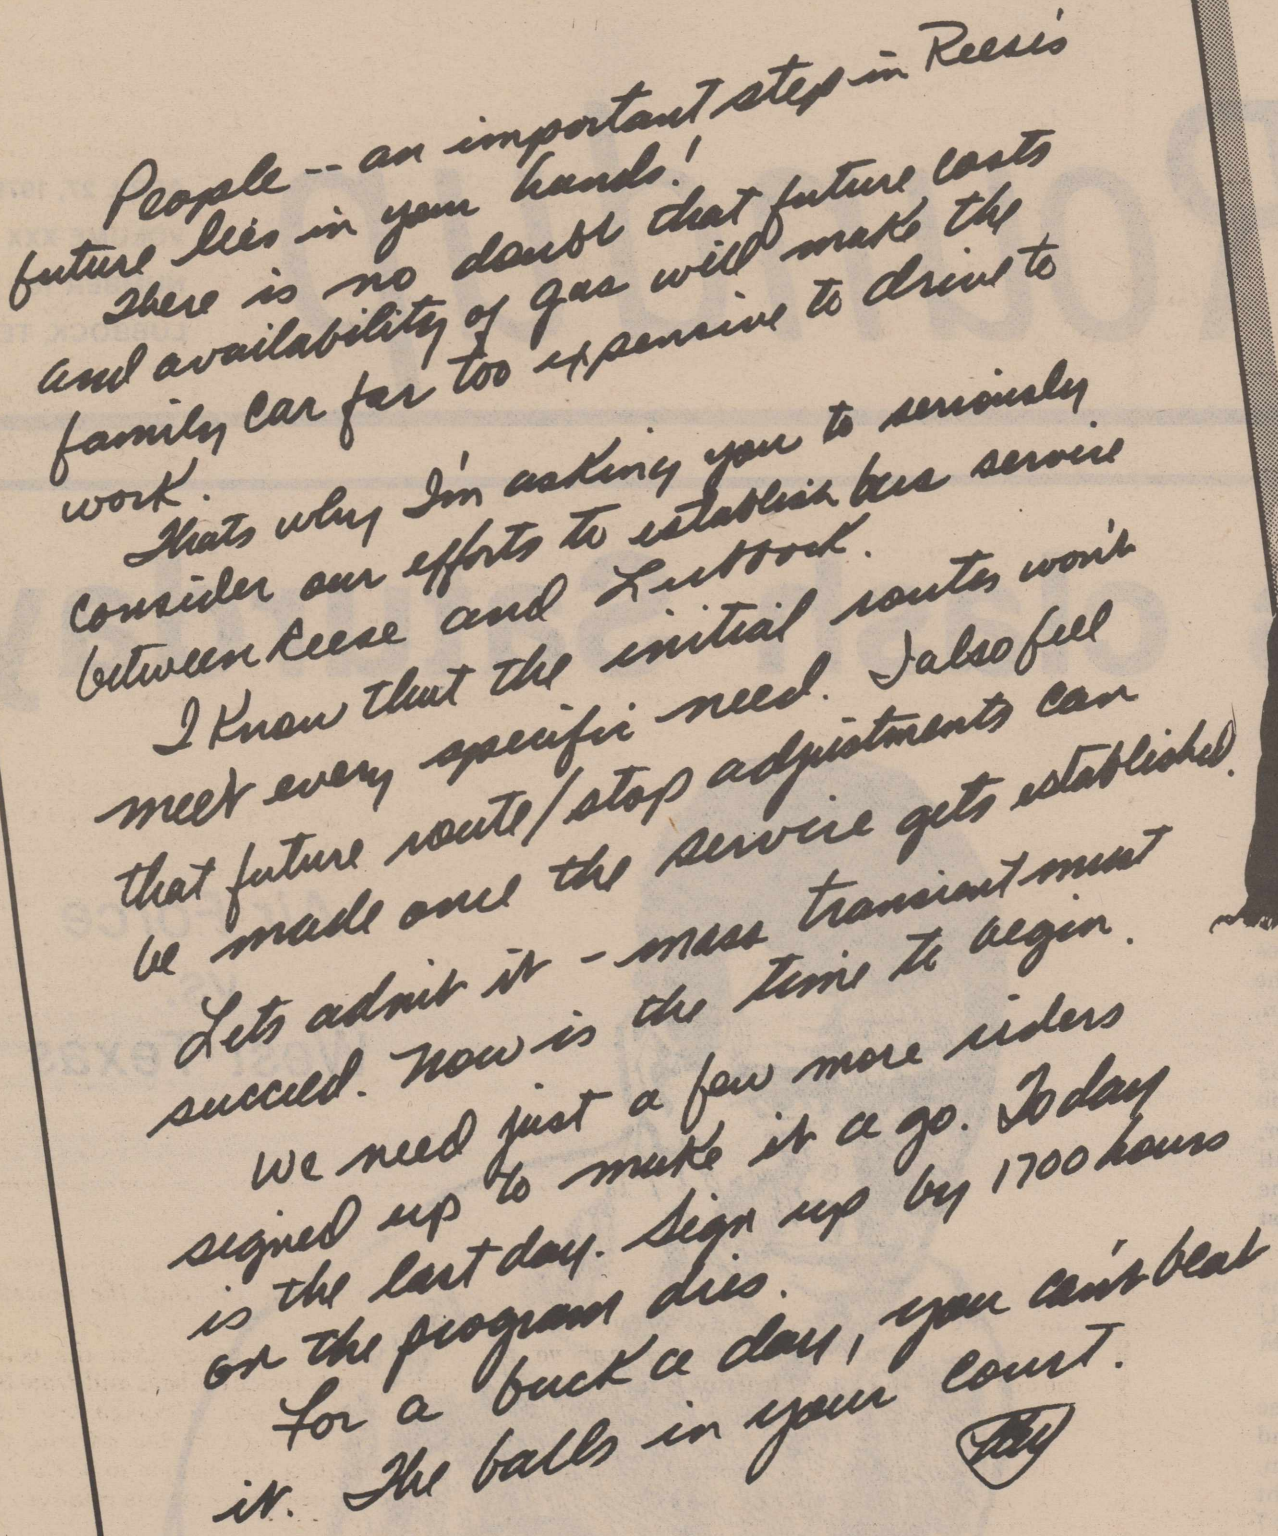 People -- an important step in Reese's
future lies in your hands!
There is no doubt that future costs
and availability of gas will make the
family car far too expensive to drive to
work.
Thats why I'm asking you to seriously
consider our efforts to establish bus service
between Reese and Lubbock.
I know that the initial routes won't
meet every specific need. I also feel
that future route/stop adjustments can
be made once the service gets established.
Lets admit it - mass transient must
succeed. Now is the time to begin.
We need just a few more riders
signed up to make it a go. Today
is the last day. Sign up by 1700 hours
or the program dies.
For a buck a day, you can't beat
it. The balls in your court.